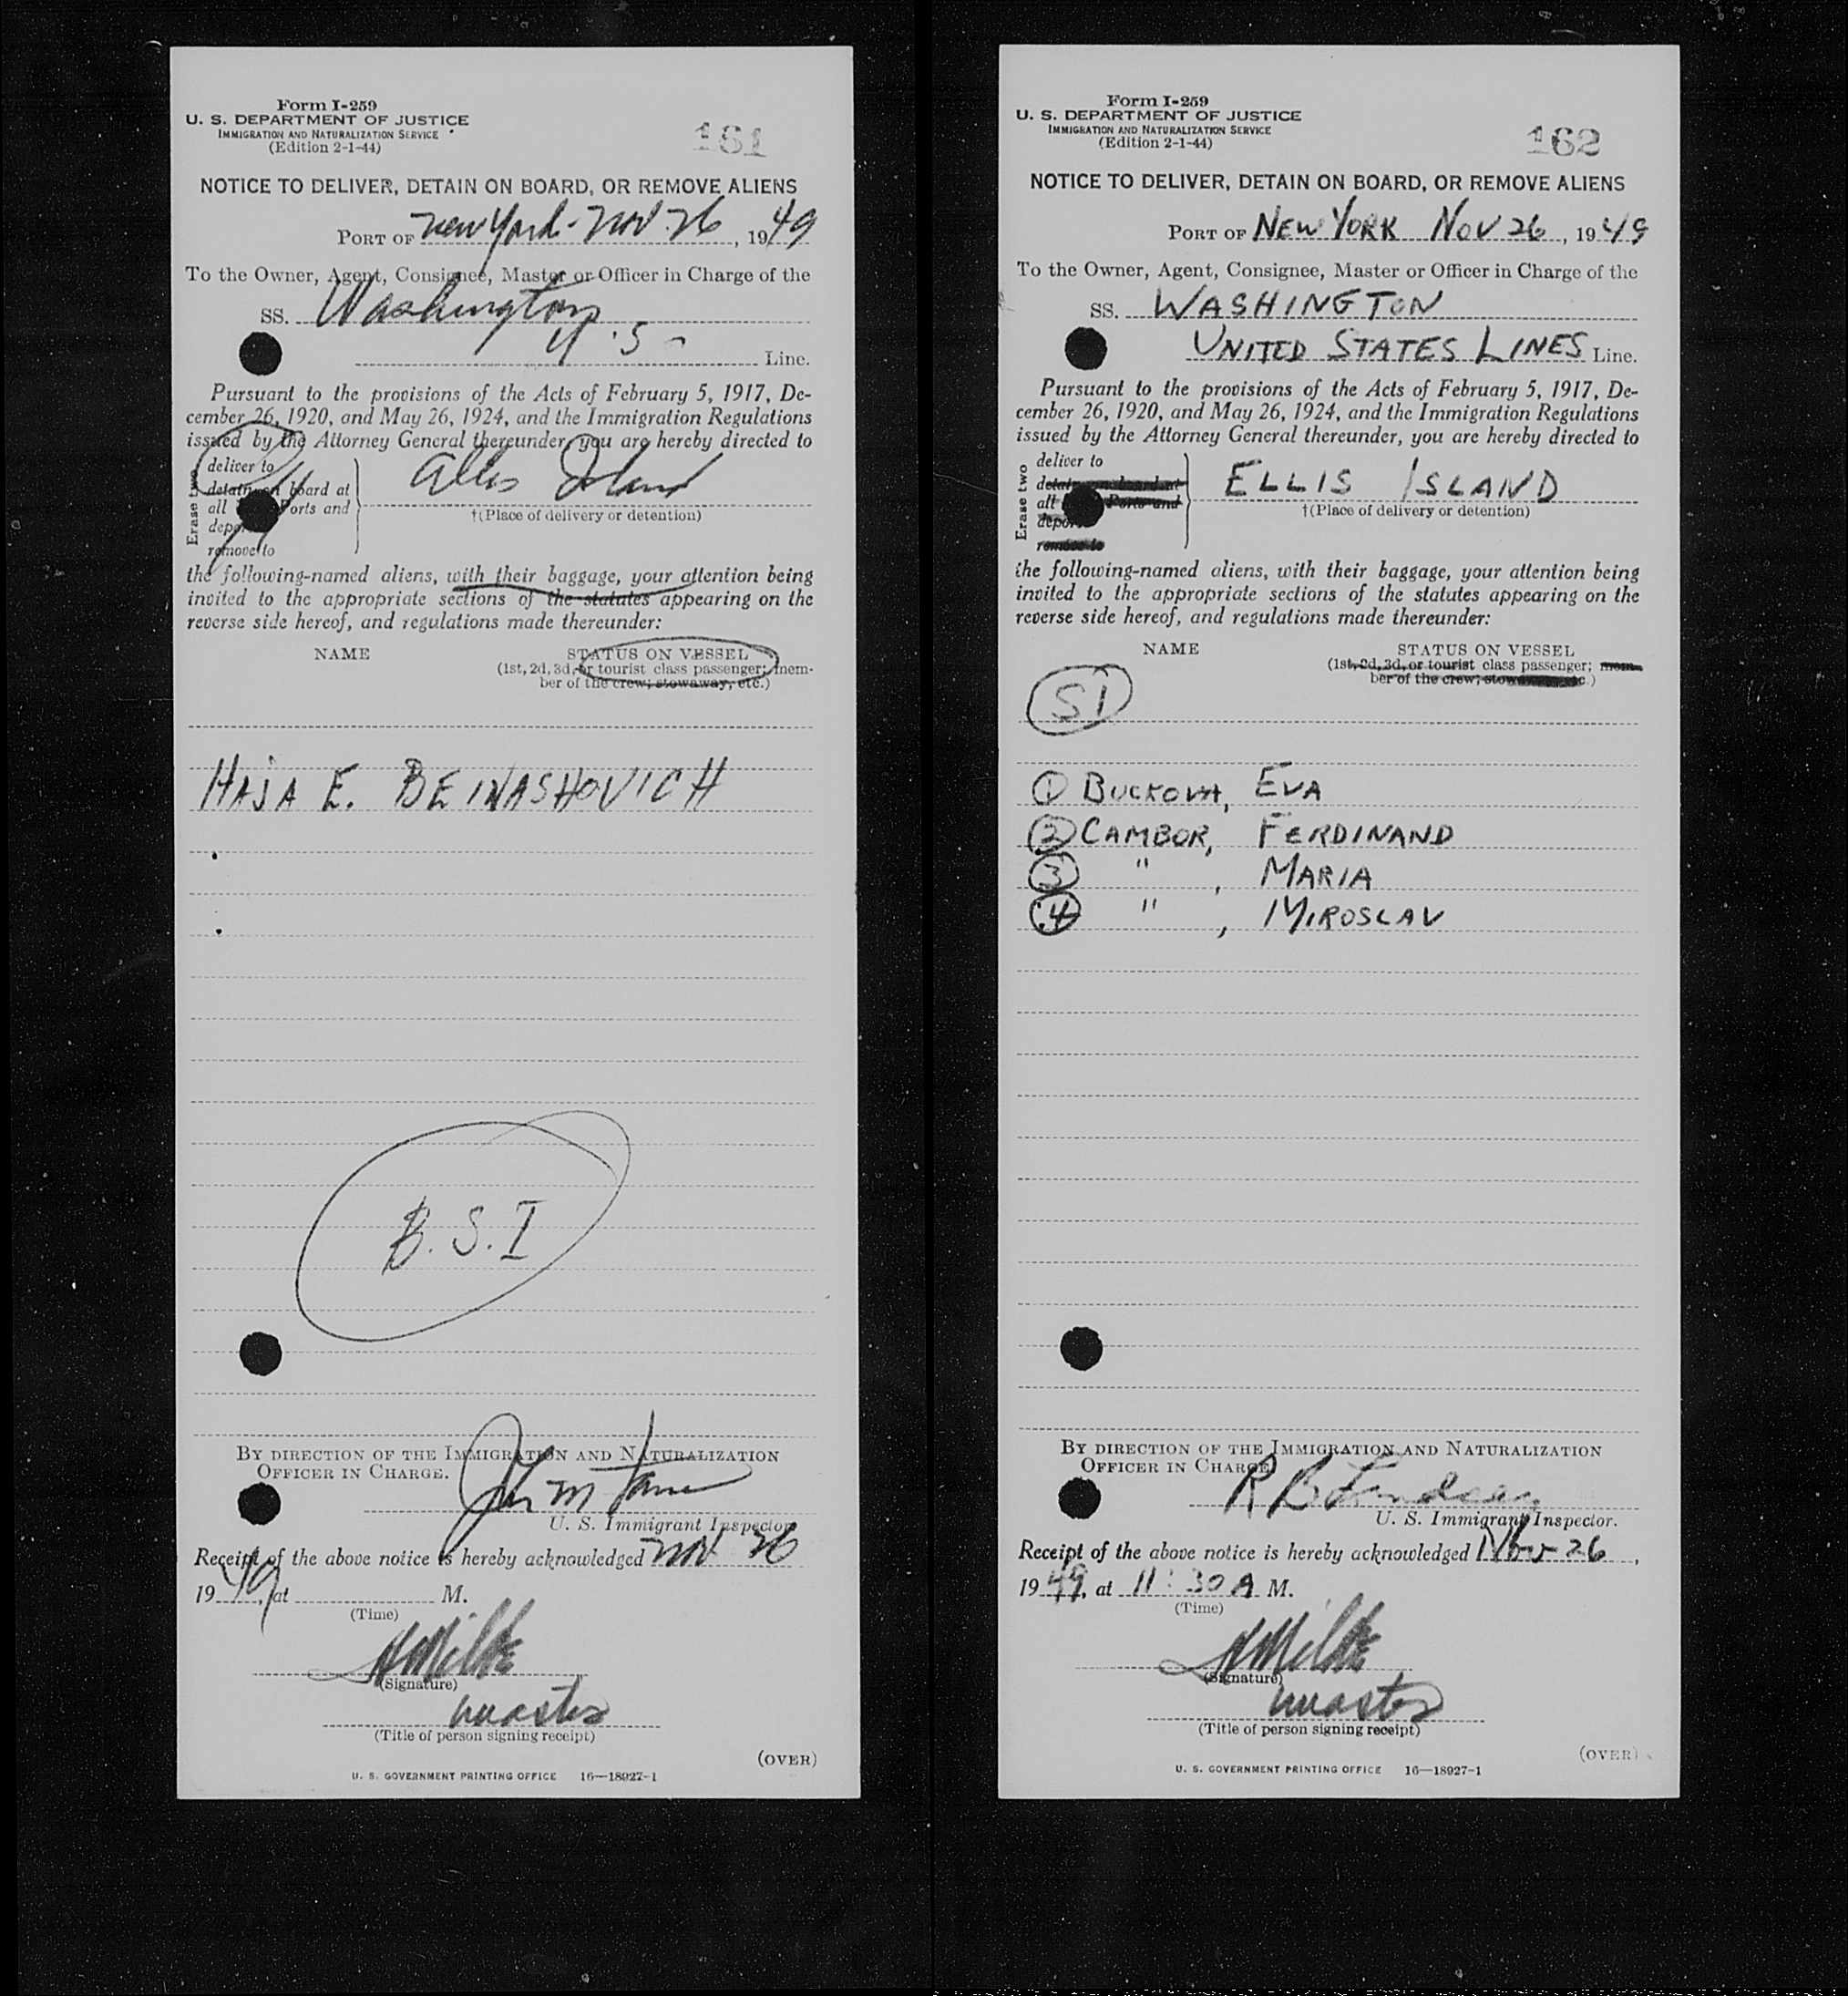 Form I-259
U. S. DEPARTMENT OF JUSTICE
IMMIGRATION AND NATURALIZATION SERVICE
(Edition 2-1-44)
161
NOTICE TO DELIVER, DETAIN ON BOARD, OR REMOVE ALIENS
PORT OF New York - Nov. 26, 1949
To the Owner, Agent, Consignee, Master or Officer in Charge of the
SS. Washington
U.S - Line.
Pursuant to the provisions of the Acts of February 5, 1917, De-
cember 26, 1920, and May 26, 1924, and the Immigration Regulations
issued by the Attorney General thereunder, you are hereby directed to
Erase two
deliver to
detain on board at
all Ports and
remove to
Ellis Island
†(Place of delivery or detention)
the following-named aliens, with their baggage, your attention being
invited to the appropriate sections of the statutes appearing on the
reverse side hereof, and regulations made thereunder:
NAME STATUS ON VESSEL
(1st, 2d, 3d, or tourist class passenger; mem-
ber of the crew; stowaway, etc.)
HAJA E. BEINASHOVICH
B.S.I
BY DIRECTION OF THE IMMIGRATION AND NATURALIZATION
OFFICER IN CHARGE.
U. S. Immigrant Inspector.
Receipt of the above notice is hereby acknowledged Nov 26
1949, at M.
(Time)
(Signature)
Master
(Title of person signing receipt)
(OVER)
U. S. GOVERNMENT PRINTING OFFICE 16—18927-1
Form I-259
U. S. DEPARTMENT OF JUSTICE
IMMIGRATION AND NATURALIZATION SERVICE
(Edition 2-1-44)
162
NOTICE TO DELIVER, DETAIN ON BOARD, OR REMOVE ALIENS
PORT OF NEW YORK NOV 26, 1949
To the Owner, Agent, Consignee, Master or Officer in Charge of the
SS. WASHINGTON
UNITED STATES LINES Line.
Pursuant to the provisions of the Acts of February 5, 1917, De-
cember 26, 1920, and May 26, 1924, and the Immigration Regulations
issued by the Attorney General thereunder, you are hereby directed to
Erase two
deliver to
detain on board at
all Ports and
remove to
ELLIS ISLAND
†(Place of delivery or detention)
the following-named aliens, with their baggage, your attention being
invited to the appropriate sections of the statutes appearing on the
reverse side hereof, and regulations made thereunder:
NAME STATUS ON VESSEL
(1st, 2d, 3d, or tourist class passenger; mem-
ber of the crew; stowaway, etc.)
SI
1 BUCKOVA, EVA
2 CAMBOR, FERDINAND
3 " , MARIA
4 " , MIROSLAV
BY DIRECTION OF THE IMMIGRATION AND NATURALIZATION
OFFICER IN CHARGE
R B Lindsey
U. S. Immigrant Inspector.
Receipt of the above notice is hereby acknowledged Nov 26,
1949, at 11:30 A M.
(Time)
(Signature)
Master
(Title of person signing receipt)
(OVER)
U. S. GOVERNMENT PRINTING OFFICE 16—18927-1